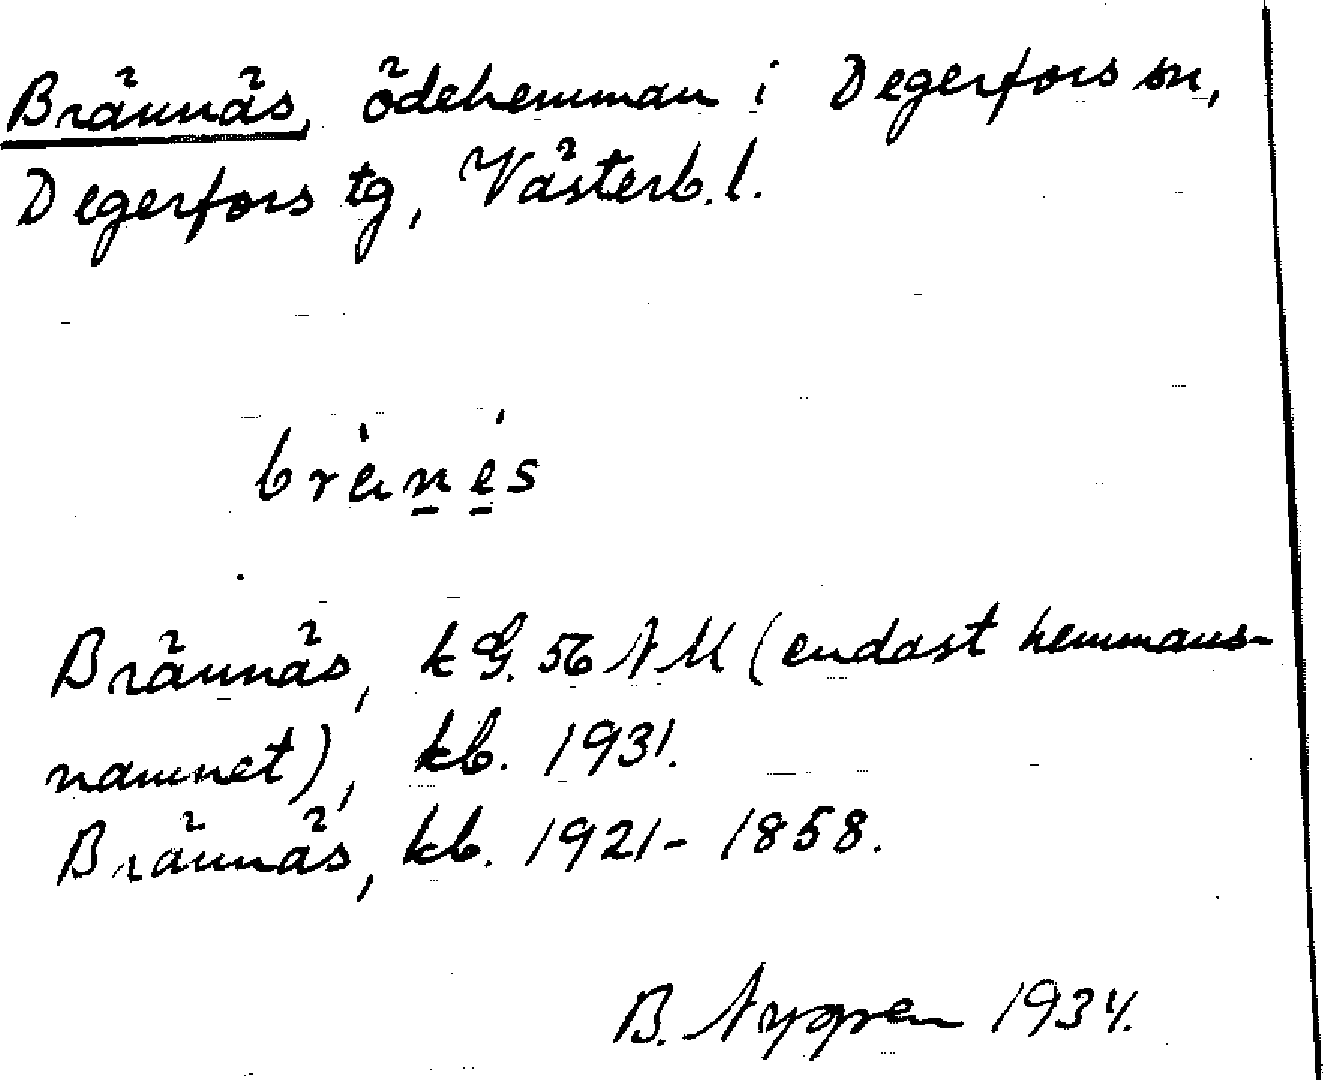 Brännäs, ödehemman i Degerfors sn,
Degerfors tg, Västerb. l.
bränes
Brännäs, k G. 56 NM (endast hemmans-
namnet), kb. 1931.
Brännäs, kb. 1921-1858.
B. Nygren 1934.